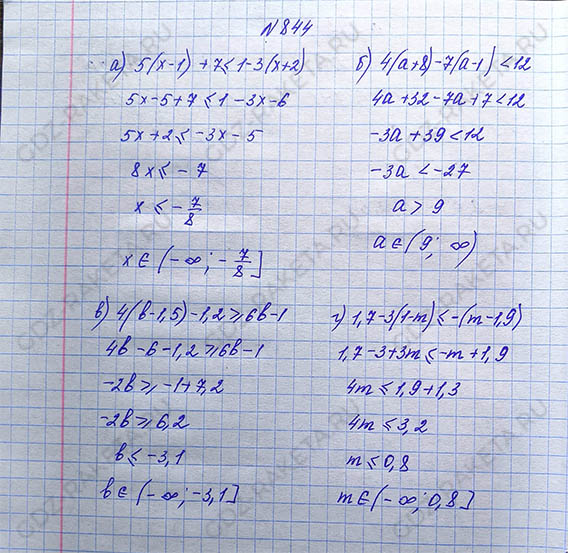 N 844
а) 5(x-1) + 7 ≤ 1-3(x+2)
5x-5+7 ≤ 1-3x-6
5x+2 ≤ -3x-5
8x ≤ -7
x ≤ -7/8
x ∈ (-∞; -7/8]
б) 4(a+8)-7(a-1) < 12
4a+32-7a+7 < 12
-3a+39 < 12
-3a < -27
a > 9
a ∈ (9; ∞)
в) 4(b-1,5)-1,2 ≥ 6b-1
4b-6-1,2 ≥ 6b-1
-2b ≥ -1+7,2
-2b ≥ 6,2
b ≤ -3,1
b ∈ (-∞; -3,1]
г) 1,7-3(1-m) ≤ -(m-1,9)
1,7-3+3m ≤ -m+1,9
4m ≤ 1,9+1,3
4m ≤ 3,2
m ≤ 0,8
m ∈ (-∞; 0,8]
GDZ-RAKETA.RU